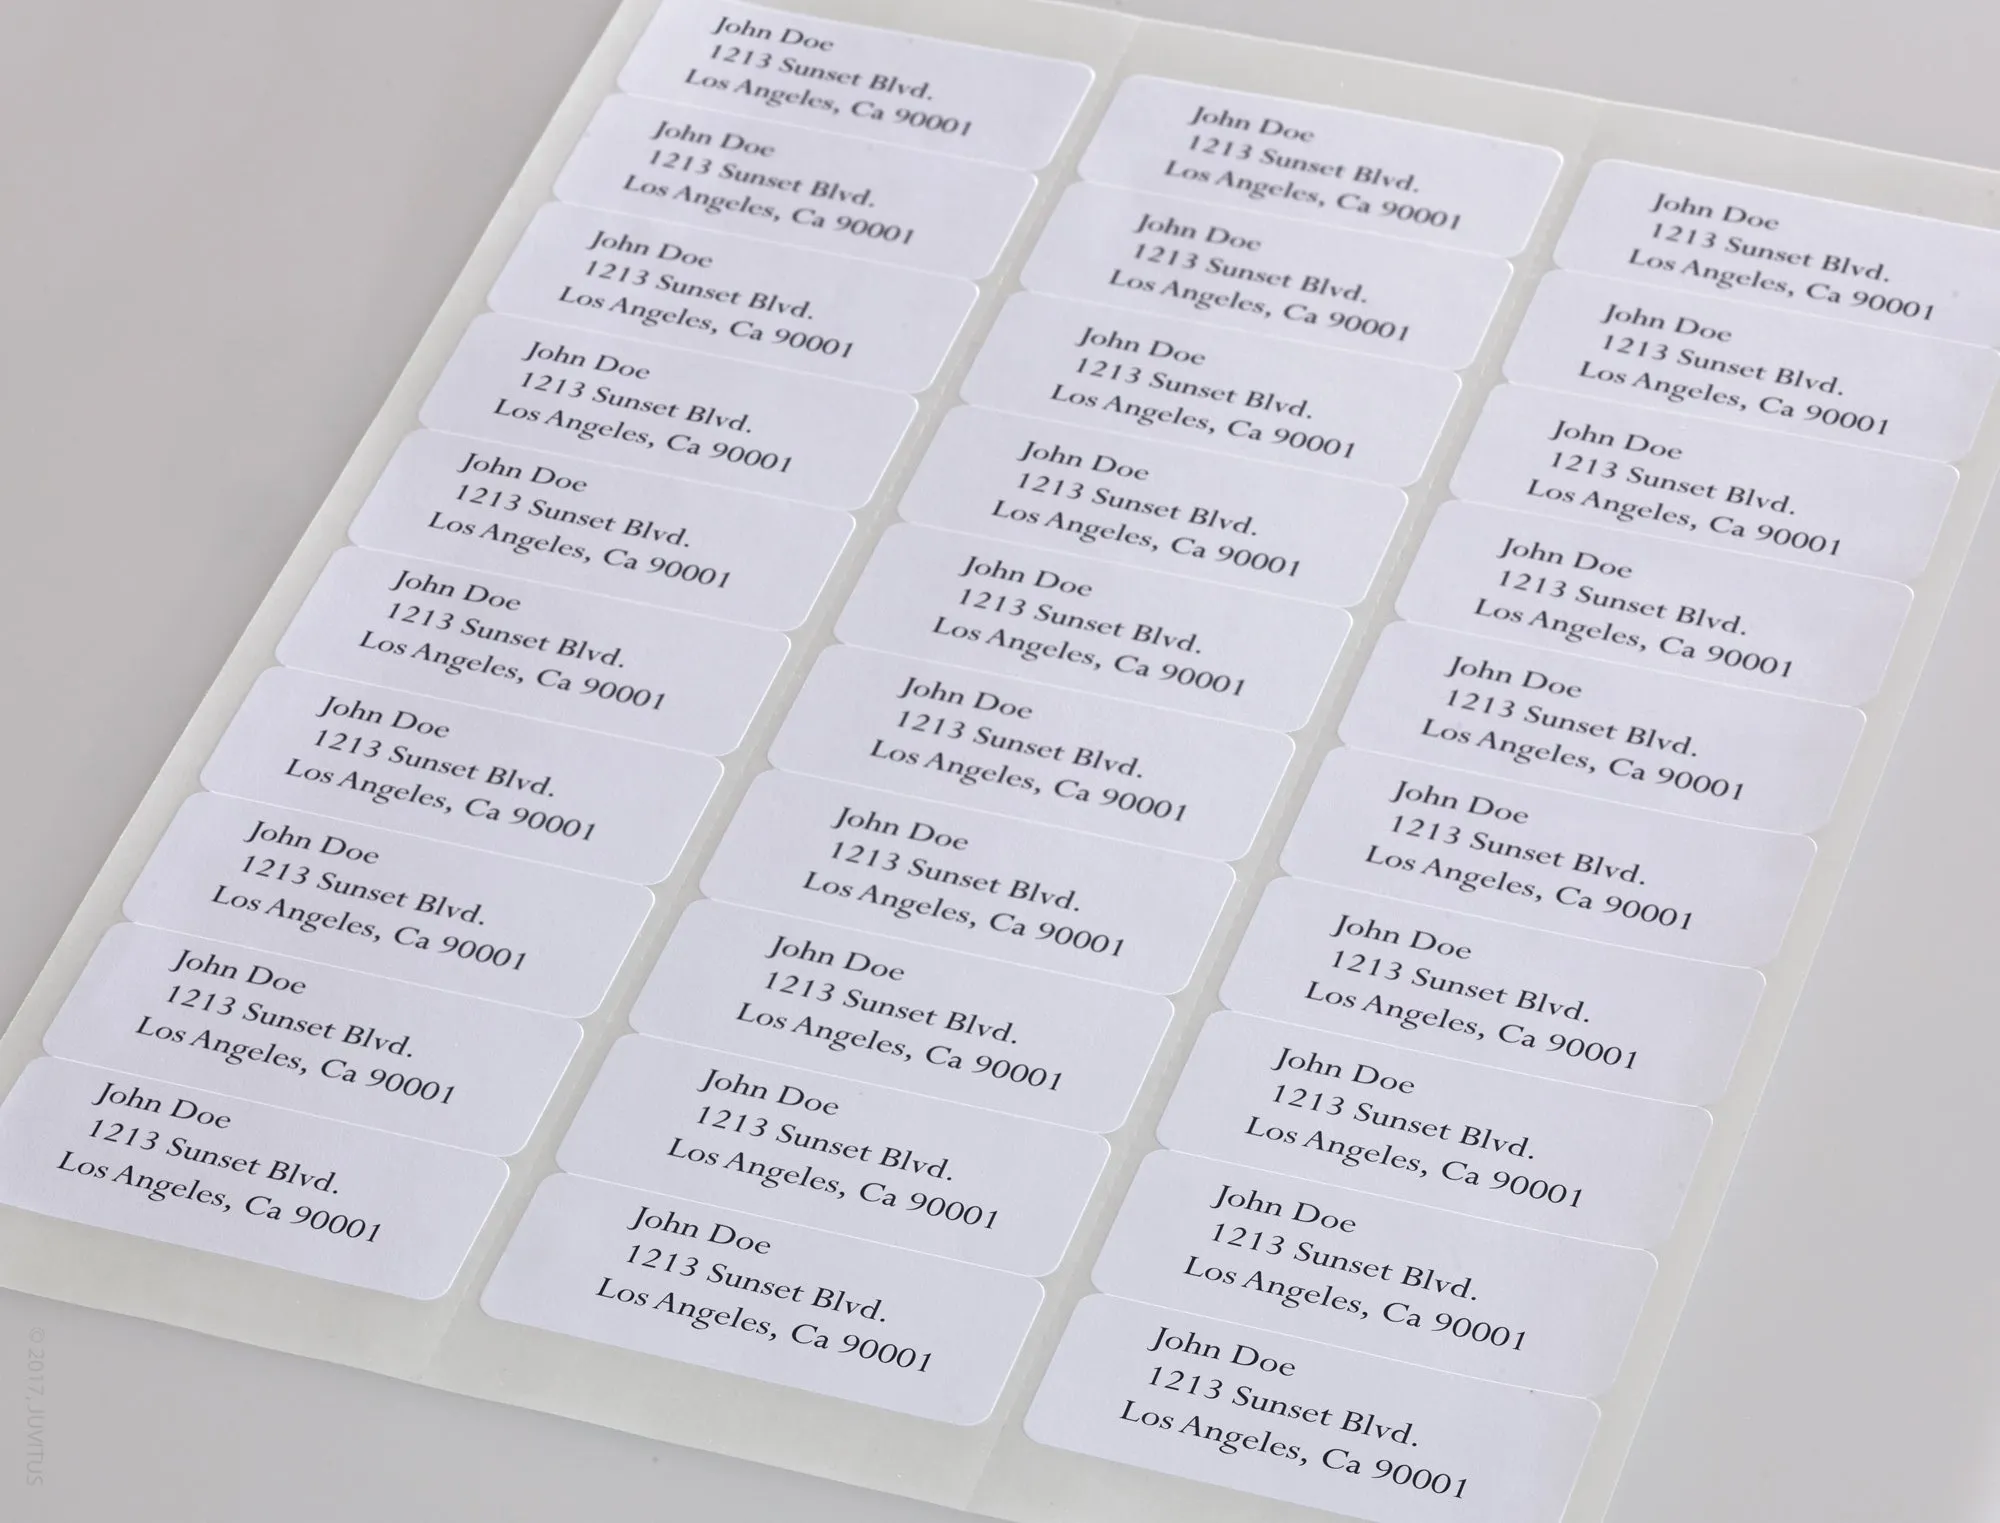 John Doe
1213 Sunset Blvd.
Los Angeles, Ca 90001
John Doe
1213 Sunset Blvd.
Los Angeles, Ca 90001
John Doe
1213 Sunset Blvd.
Los Angeles, Ca 90001
John Doe
1213 Sunset Blvd.
Los Angeles, Ca 90001
John Doe
1213 Sunset Blvd.
Los Angeles, Ca 90001
John Doe
1213 Sunset Blvd.
Los Angeles, Ca 90001
John Doe
1213 Sunset Blvd.
Los Angeles, Ca 90001
John Doe
1213 Sunset Blvd.
Los Angeles, Ca 90001
John Doe
1213 Sunset Blvd.
Los Angeles, Ca 90001
John Doe
1213 Sunset Blvd.
Los Angeles, Ca 90001
John Doe
1213 Sunset Blvd.
Los Angeles, Ca 90001
John Doe
1213 Sunset Blvd.
Los Angeles, Ca 90001
John Doe
1213 Sunset Blvd.
Los Angeles, Ca 90001
John Doe
1213 Sunset Blvd.
Los Angeles, Ca 90001
John Doe
1213 Sunset Blvd.
Los Angeles, Ca 90001
John Doe
1213 Sunset Blvd.
Los Angeles, Ca 90001
John Doe
1213 Sunset Blvd.
Los Angeles, Ca 90001
John Doe
1213 Sunset Blvd.
Los Angeles, Ca 90001
John Doe
1213 Sunset Blvd.
Los Angeles, Ca 90001
John Doe
1213 Sunset Blvd.
Los Angeles, Ca 90001
John Doe
1213 Sunset Blvd.
Los Angeles, Ca 90001
John Doe
1213 Sunset Blvd.
Los Angeles, Ca 90001
John Doe
1213 Sunset Blvd.
Los Angeles, Ca 90001
John Doe
1213 Sunset Blvd.
Los Angeles, Ca 90001
John Doe
1213 Sunset Blvd.
Los Angeles, Ca 90001
John Doe
1213 Sunset Blvd.
Los Angeles, Ca 90001
John Doe
1213 Sunset Blvd.
Los Angeles, Ca 90001
John Doe
1213 Sunset Blvd.
Los Angeles, Ca 90001
John Doe
1213 Sunset Blvd.
Los Angeles, Ca 90001
John Doe
1213 Sunset Blvd.
Los Angeles, Ca 90001
© 2017, JUVITUS